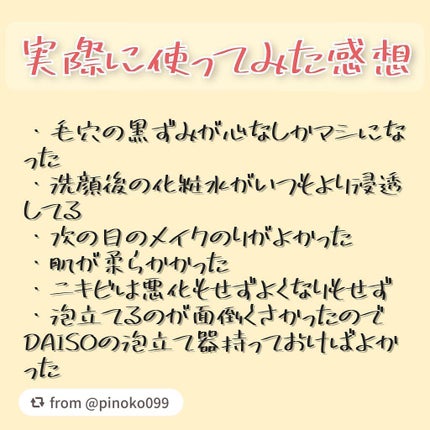 実際に使ってみた感想
・毛穴の黒ずみが心なしかマシにな
った
・洗顔後の化粧水がいつもより浸透
してる
・次の日のメイクのりがよかった
・肌が柔らかかった
・ニキビは悪化もせずよくなりもせず
・泡立てるのが面倒くさかったので
DAISOの泡立て器持っておけばよか
った
from @pinoko099